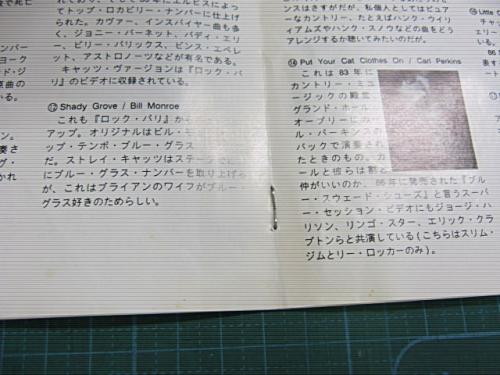 で死亡
ンバー
ド・ジ
原曲の
いる。
ン。
奏さ
グ・
かれ
てトップ・ロカビリー・ナンバーに仕上げ
られた。カヴァー、インスパイヤー曲も多
く、ジョニー・バーネット、バディ・エリ
ー、ビリー・バリックス、ビンス・エベレ
ット、アストロノーツなどが有名である。
キャッツ・ヴァージョンは『ロック・パ
リ』のビデオに収録されている。
⑫ Shady Grove / Bill Monroe
これも『ロック・パリ』から
アップ。オリジナルはビル・モ
ップ・テンポ・ブルー・グラス
だ。ストレイ・キャッツはステー
にブルー・グラス・ナンバーを取り上げ
が、これはブライアンのワイフがブルー・
グラス好きのためらしい。
ンスはさすがだが、私個人としてはピュア
ーなカントリー、たとえばハンク・ウイリ
ィアムズやハンク・スノウなどの曲をどう
アレンジするか聴いてみたいのだが。
⑭ Put Your Cat Clothes On / Carl Perkins
これは83年に
カントリー・ミュ
ージックの殿堂
グランド・ホール
オープリーにカ
ール・パーキンスの
バックで演奏され
たときのもの。カ
ールと彼らは割と
仲がいいのか、86年に発売された『ブル
ー・スウェード・シューズ』と言うスーパ
ー・セッション・ビデオにもジョージ・ハ
リソン、リンゴ・スター、エリック・クラ
プトンらと共演している（こちらはスリム・
ジムとリー・ロッカーのみ）。
Little
チャ
イー
る。
86
表す